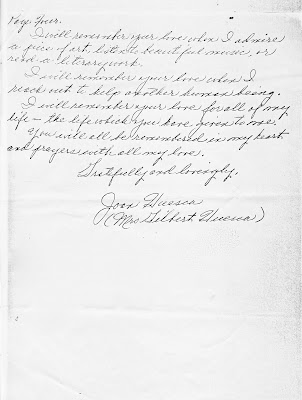 Page Four.
I will remember your love when I admire
a piece of art, listen to beautiful music, or
read a literary work.
I will remember your love when I
reach out to help another human being.
I will remember your love for all of my
life - the life which you have given to me.
You will all be remembered in my heart
and prayers with all my love.
Gratefully and lovingly,
Joan Huesca
(Mrs. Gilbert Huesca)